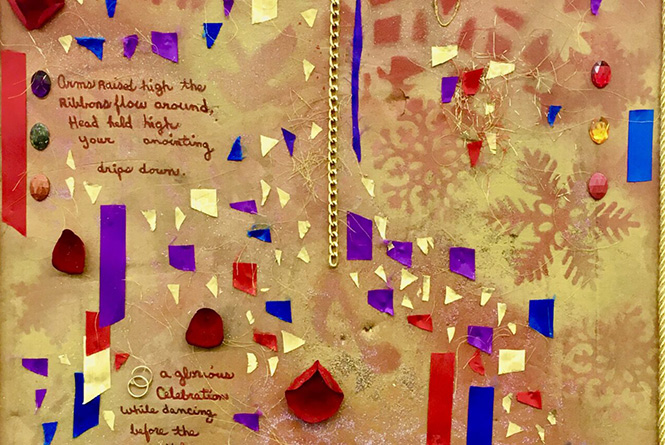 Arms Raised high the
Ribbons flow around,
Head held high
your anointing
drips down.
a glorious
Celebration
while dancing
before the